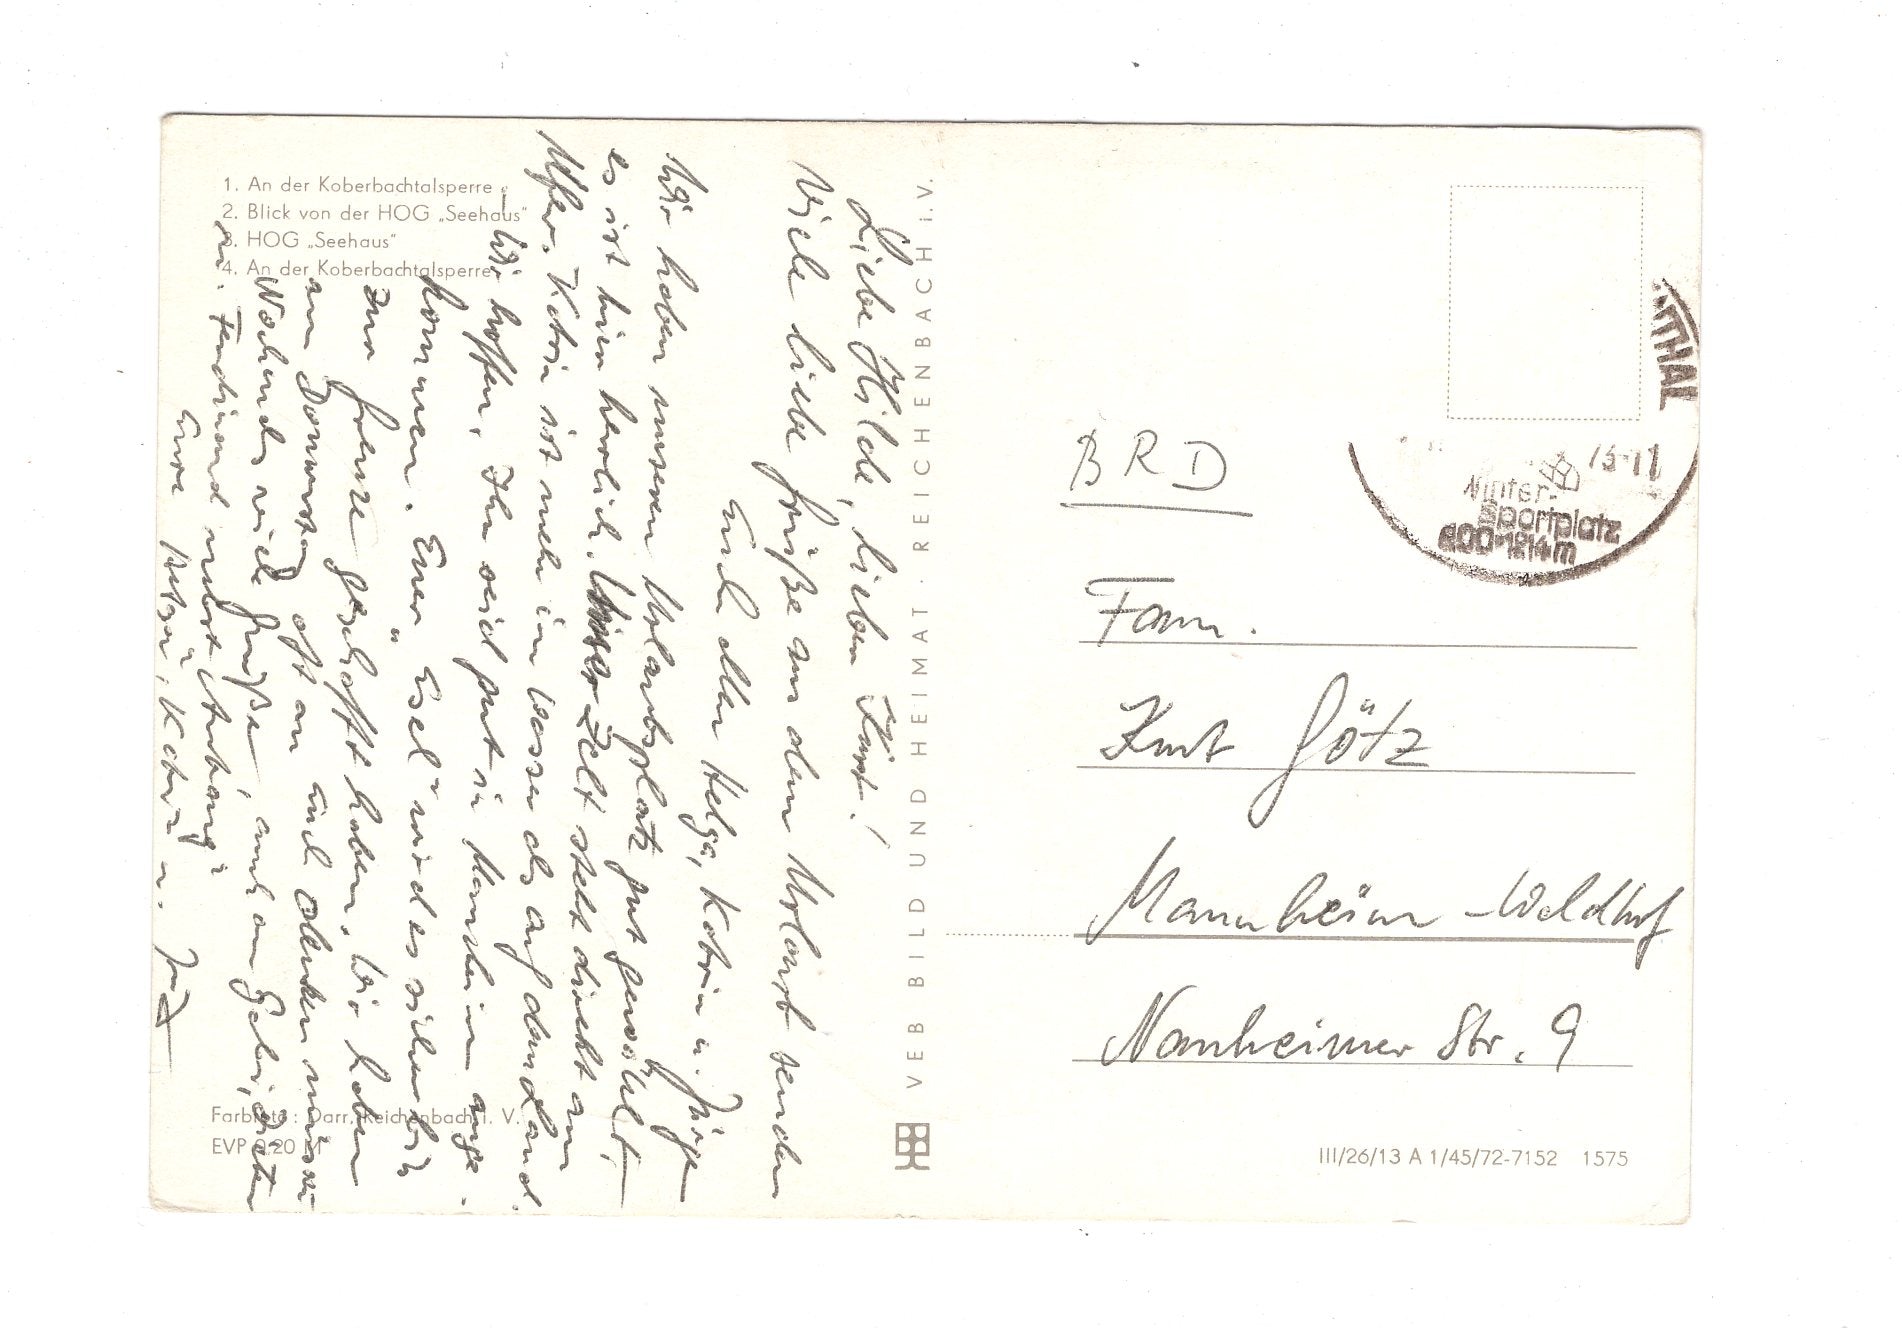 1. An der Koberbachtalsperre
2. Blick von der HOG „Seehaus"
3. HOG „Seehaus"
4. An der Koberbachtalsperre
Liebe Hilde, lieber Kurt!
Viele liebe Grüße aus dem Urlaub senden
Euch allen Helga, Katrin u. Jürgen
Wir haben unseren Urlaubsplatz gut gewählt,
es ist hier herrlich. Unser Zelt steht direkt am
Ufer. Katrin ist mehr im Wasser als auf dem Land.
Wir hoffen, Ihr seid gut in Mannheim ange-
kommen. Euer „Esel" wird es sicher bis
zur Grenze geschafft haben. Wir haben
am Donnerstag oft an Euch denken müssen
Wochends viele Grüße, auch an Gabi, Dieter
u. Ferdinand
Eure Helga, Katrin u.
Farbfoto: Darr, Reichenbach i. V.
EVP 0,20 M
VEB BILD UND HEIMAT · REICHENBACH i. V.
THAL
Winter-
Sportplatz
800-1214m
BRD
Fam.
Kurt Götz
Mannheim-Waldhof
Nanheimer Str. 9
III/26/13 A 1/45/72-7152 1575